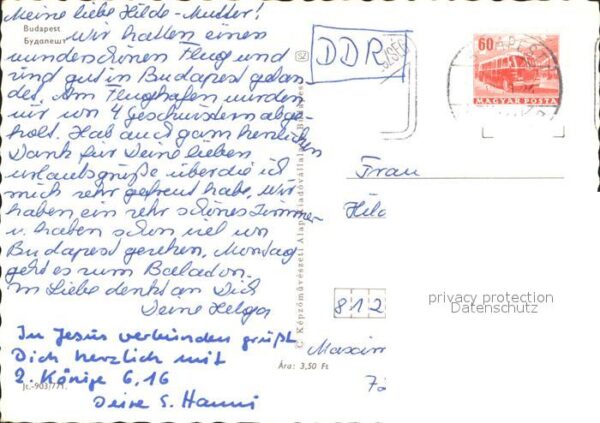 Meine liebe Hilde-Mutter!
Budapest
Будапешт
Wir hatten einen
wunderschönen Flug und
sind gut in Budapest gelan-
det. Am Flughafen wurden
wir von 4 Geschwistern abge-
holt. Hab auch ganz herzlichen
Dank für Deine lieben
Urlaubsgrüße über die ich
mich sehr gefreut habe. Wir
haben ein sehr schönes Zimmer
u. haben schon viel von
Budapest gesehen, Montag
geht es zum Balaton.
In Liebe denkt an Dich
Deine Helga
In Jesus verbunden grüßt
Dich herzlich mit
2. Könige 6,16
Deine S. Hanni
Jr.-903/771.
© Képzőművészeti Alap Kiadóvállalata, Budapest
Ára: 3,50 Ft
DDR
60
MAGYAR POSTA
Frau
Hild
812
privacy protection
Datenschutz
Maxim
72